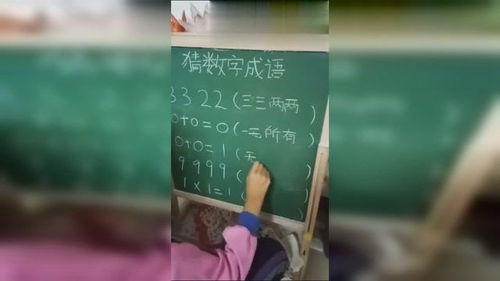 猜数字成语
3322(三三两两)
0+0=0(一无所有)
0+0=1(无
9999(        )
1×1=1(
)